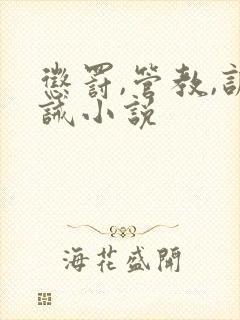 懲罰,管教,訓
誡小說
海花盛開